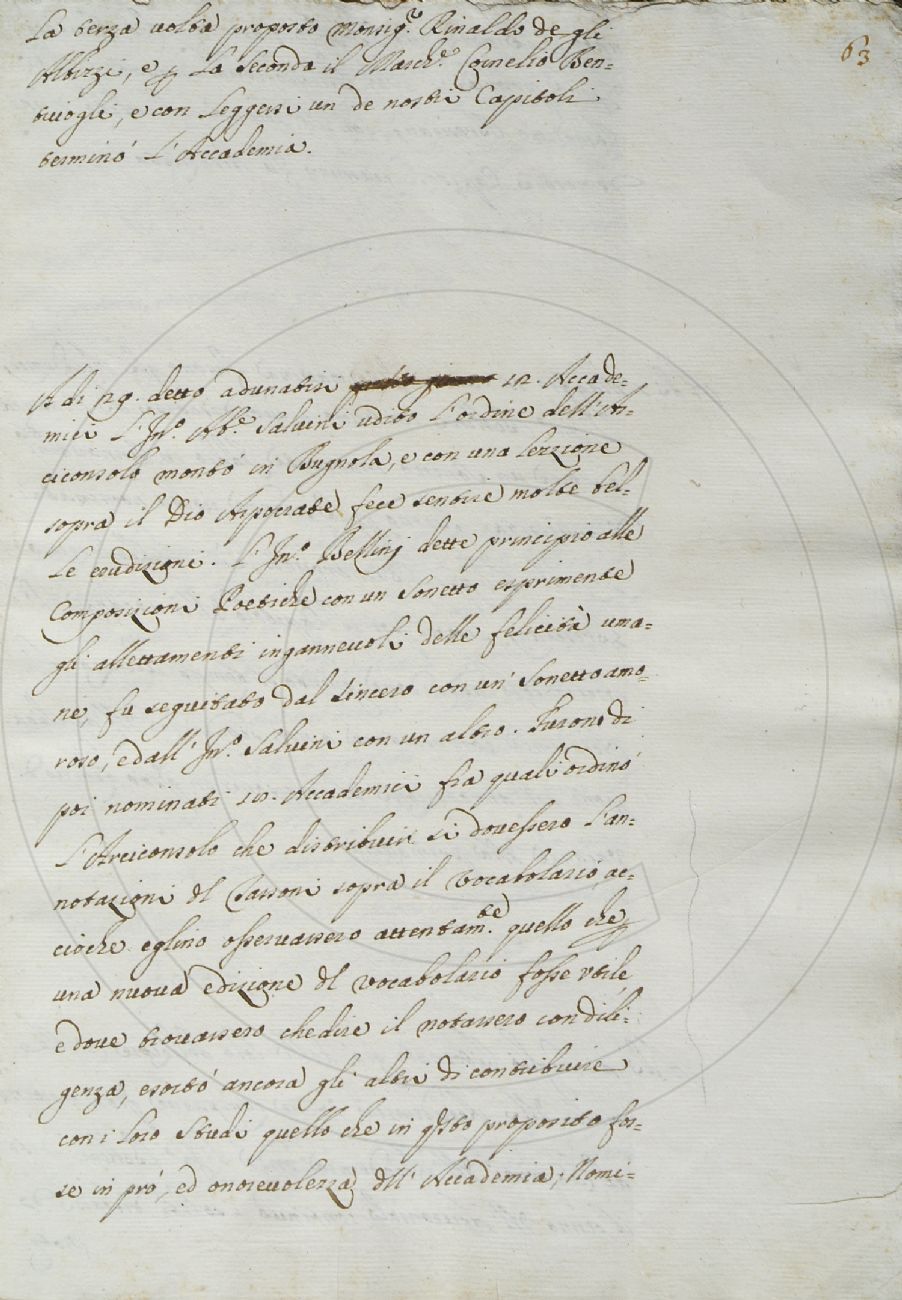 63
La terza volta proposto Monsig.re Rinaldo degli
Albizzi, e p La Seconda il March.e Cornelio Ben=
tivogli, e con Leggersi un de nostri Capitoli
terminò L'Accademia.
A di 29. detto adunatisi 12. Accade=
mici L'Inn.o Ab.e Salvini udito L'ordine dell'Ar=
ciconsolo montò in Bugnola, e con una Lezzione
sopra il Dio Arpocrate fece sentire molte bel=
Le erudizioni. L'Inn.o Bellinj dette principio alle
Composizioni Poetiche con un Sonetto esprimente
gli allettamenti ingannevoli delle felicità uma=
ne, fu seguitato dal Sincero con un' Sonetto amo=
roso, e dall' Inn.o Salvini con un altro. Furono di
poi nominati 10. Accademici fra quali ordinò
L'Arciconsolo che distribuir si dovessero L'an=
notazioni dl Tassoni sopra il Vocabolario, ac=
cioche eglino osservassero attentam.te quello che p
una nuova edizione dl Vocabolario fosse utile
e dove trovassero che dire il notassero con dili=
genza, esortò ancora gli altri di contribuire
con i Loro Studi quello che in qsto proposito fos=
se in prò, ed onorevolezza dll' Accademia; Nomi=